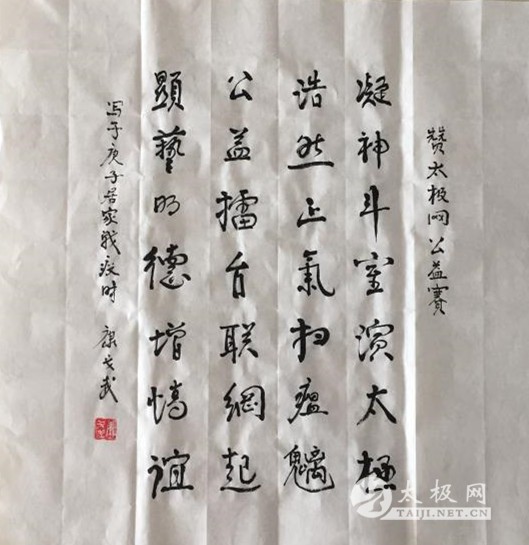 赞太极网公益赛
凝神斗室演太極
浩然正氣扫瘟魑
公益擂台联網起
顯藝明德增情谊
写于庚子居家战疫时 康戈武
太极网
TAIJI.NET.CN